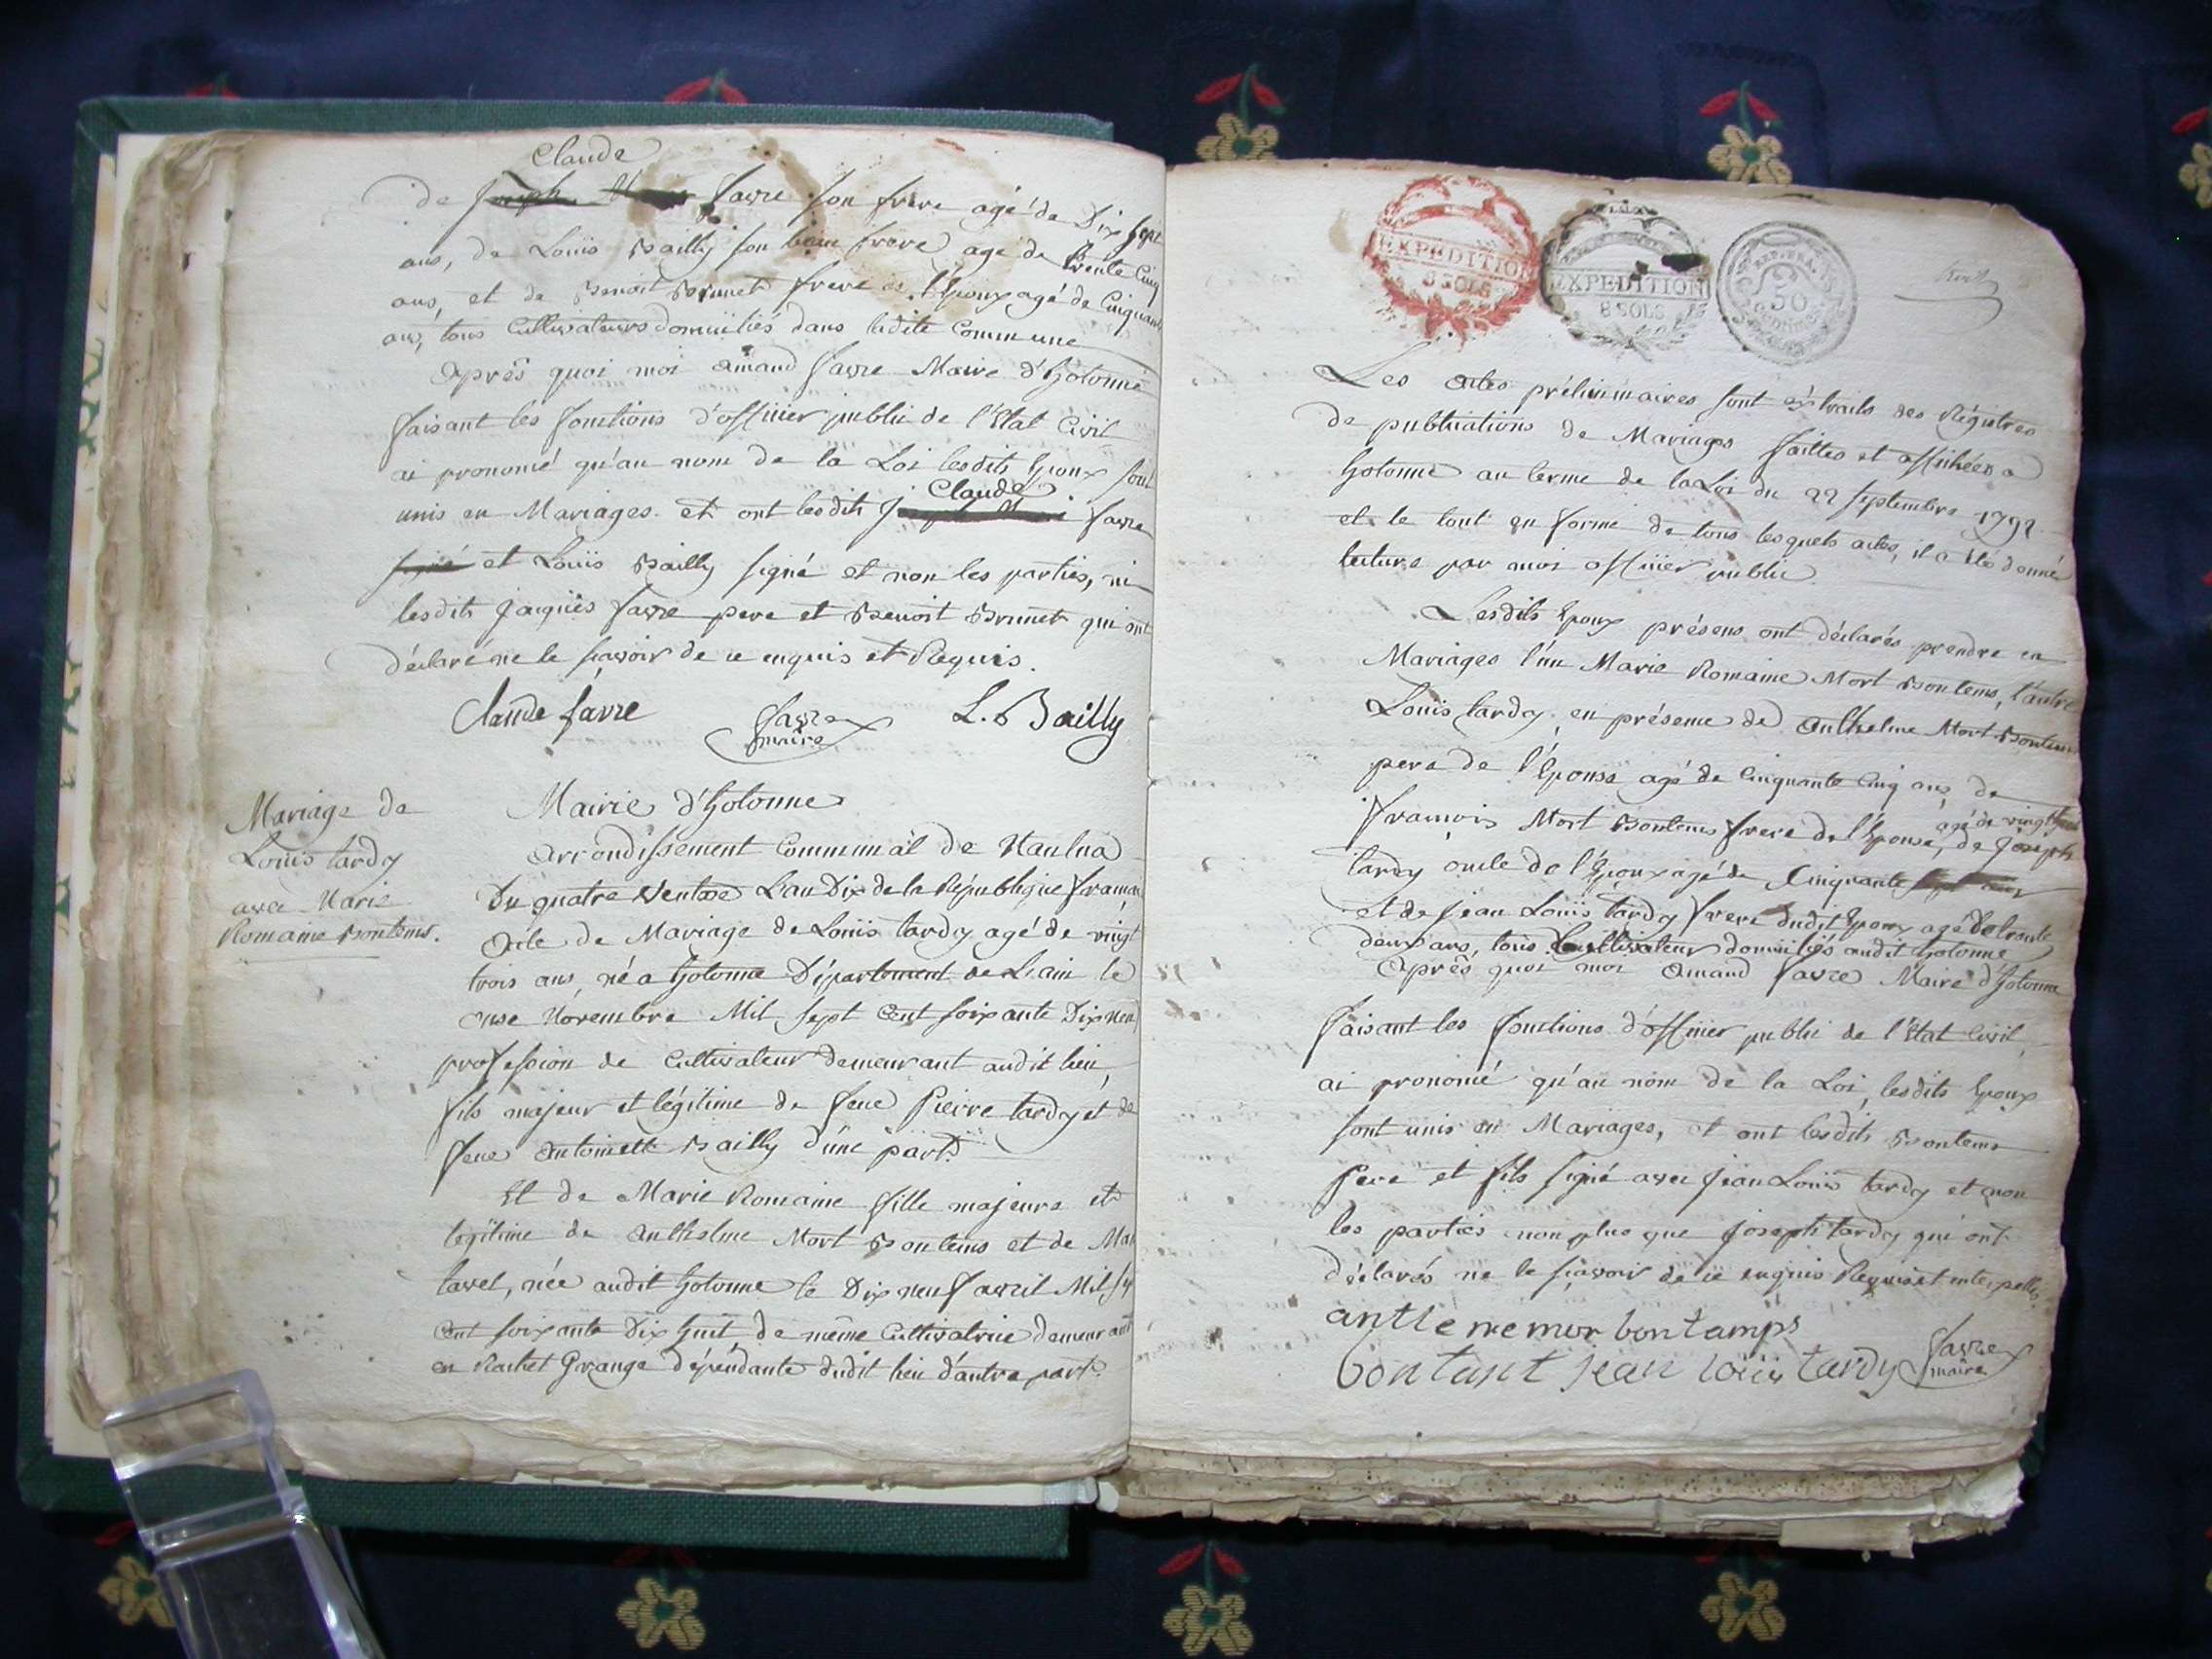 Claude
de Joseph Favre son frere agé de Dix Sept
ans, de Loüis Bailly son beau frere agé de trente Cinq
ans, et de Benoit Brunet frere de l'Epoux agé de Cinquante
ans, tous Cultivateurs domiciliés dans ladite Commune
Après quoi moi Amand Favre Maire d'hotonne
faisant les fonctions d'officier public de l'Etat Civil
ai prononcé qu'au nom de la Loi lesdits Epoux sont
Claude
unis en Mariages. et ont lesdits Favre
signé et Loüis Bailly signé et non les parties, ni
lesdits Jaques Favre pere et Benoit Brunet qui ont
déclaré ne le sçavoir de ce enquis et Requis.
Claude favre Favre maire L. Bailly
Mariage de
Louis tardy
avec Marie
Romaine Bontems.
Mairie d'hotonne
Arrondissement Communal de Nantua
Du quatre Ventose L'an Dix de la République francai
Acte de Mariage de Loüis tardy agé de vingt
trois ans, né a hotonne Département de Lain le
onse Novembre Mil sept Cent soixante Dix neuf
profession de Cultivateur demeurant audit lieu,
fils majeur et légitime de feue Pierre tardy et de
feue Antoinette Bailly d'une part.
Et de Marie Romaine fille majeure et
legitime de Anthelme Mort Bontems et de Mar
tavel, née audit hotonne le Dix neuf avril Mil sept
Cent soixante Dix huit de même Cultivatrice demeurant
en Rachet Grange dépendante dudit lieu d'autre part.
EXPEDITION
8 SOLS
EXPEDITION
8 SOLS
50
Centimes
Les actes préliminaires sont extraits des Régistres
de publications de Mariages faittes et affichées a
hotonne au terme de la Loi du 22 septembre 1792
et le tout en forme de tous lesquels actes, il a été donné
lecture par moi officier public.
Lesdits Epoux présens ont déclarés prendre en
Mariages l'un Marie Romaine Mort Bontems, l'autre
Louis tardy, en présence de Anthelme Mort Bontems
pere de l'Epouse agé de Cinquante Cinq ans, de
agé de vingt
francois Mort Bontems frere de l'Epouse, de Joseph
tardy oncle de l'Epoux agé de Cinquante sept ans
et de Jean Louis tardy frere dudit Epoux agé de trente
deux ans, tous Cultivateur domiciliés audit hotonne
Après quoi moi Amand Favre Maire d'hotonne
faisant les fonctions d'officier public de l'Etat Civil,
ai prononcé qu'au nom de la Loi, lesdits Epoux
sont unis en Mariages, et ont lesdits Bontems
Pere et fils signé avec Jean Louis tardy et non
les parties non plus que Joseph tardy qui ont
déclarés ne le sçavoir de ce enquis Requis et interpellés,
antlememor bontamps
bontant jean loüis tardy Favre maire